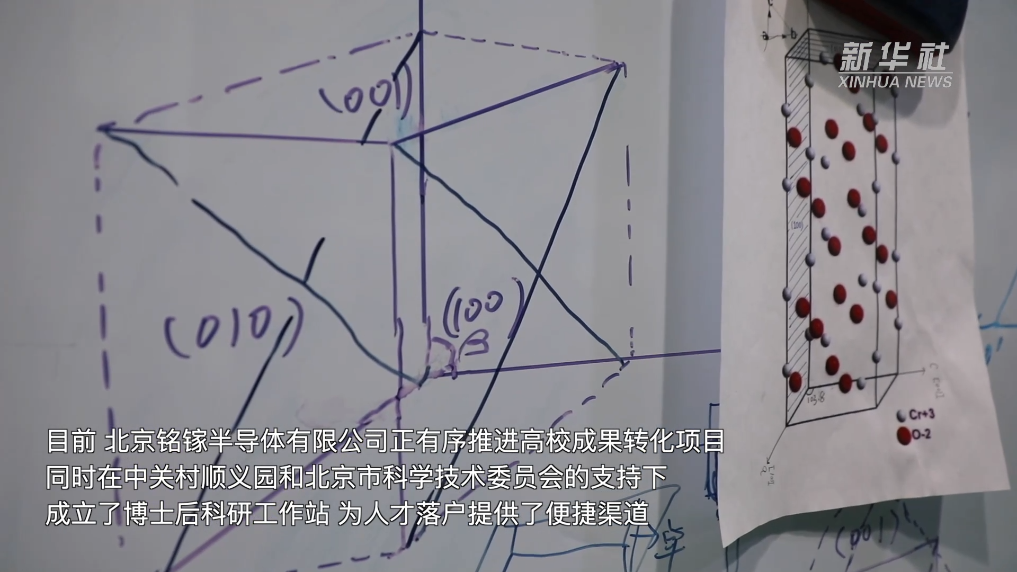 新华社
XINHUA NEWS
a
b
(001)
(010)
(100)
β
(100)
Cr+3
O-2
(001)
目前 北京铭镓半导体有限公司正有序推进高校成果转化项目
同时在中关村顺义园和北京市科学技术委员会的支持下
成立了博士后科研工作站 为人才落户提供了便捷渠道